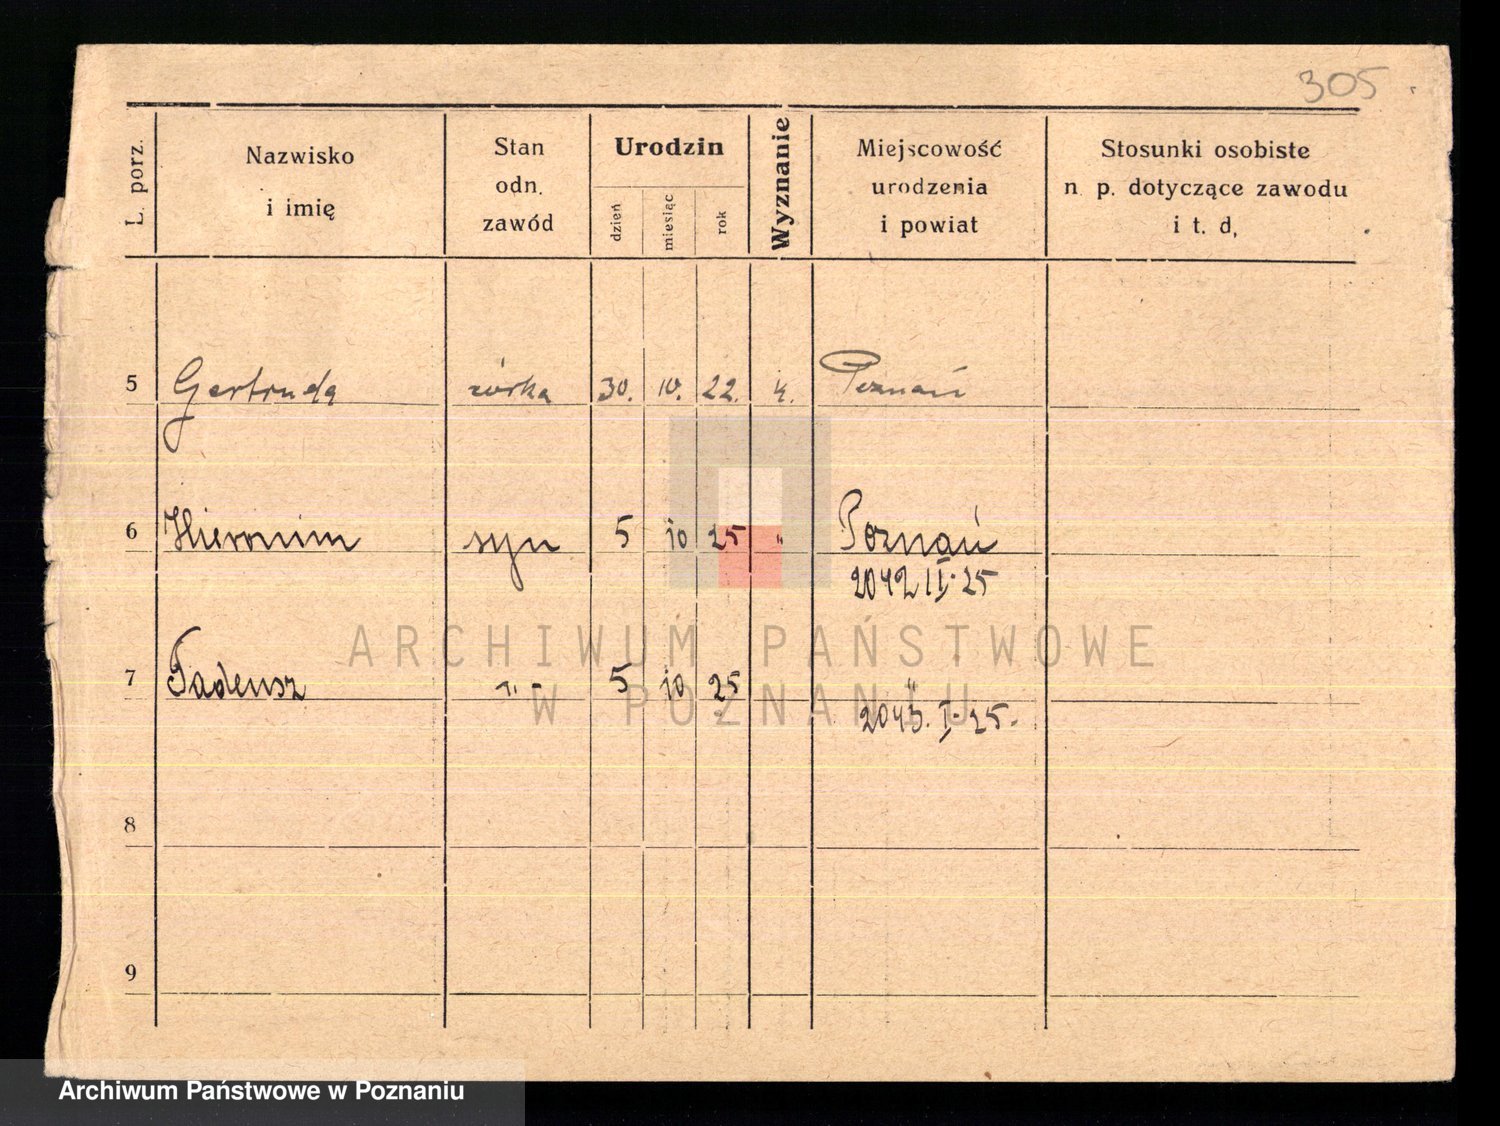 305
L. porz.
Nazwisko
i imię
Stan
odn.
zawód
Urodzin
dzień
miesiąc
rok
Wyznanie
Miejscowość
urodzenia
i powiat
Stosunki osobiste
n. p. dotyczące zawodu
i t. d,
5 Gertruda córka 30. 10. 22. Poznań
6 Hieronim syn 5 10 25 " Poznań
2042 II. 25
7 Tadeusz -"- 5 10 25 "
2043. I. 25.
8
9
ARCHIWUM PAŃSTWOWE
W POZNANIU
Archiwum Państwowe w Poznaniu